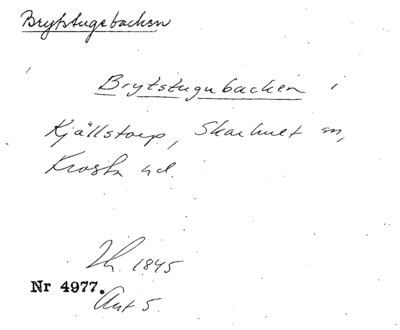 Brytstugubacken
Brytstugubacken i
Kjällstorp, Skarhult sn,
Frosta hd.
Th. 1845
Nr 4977.
Ant 5.